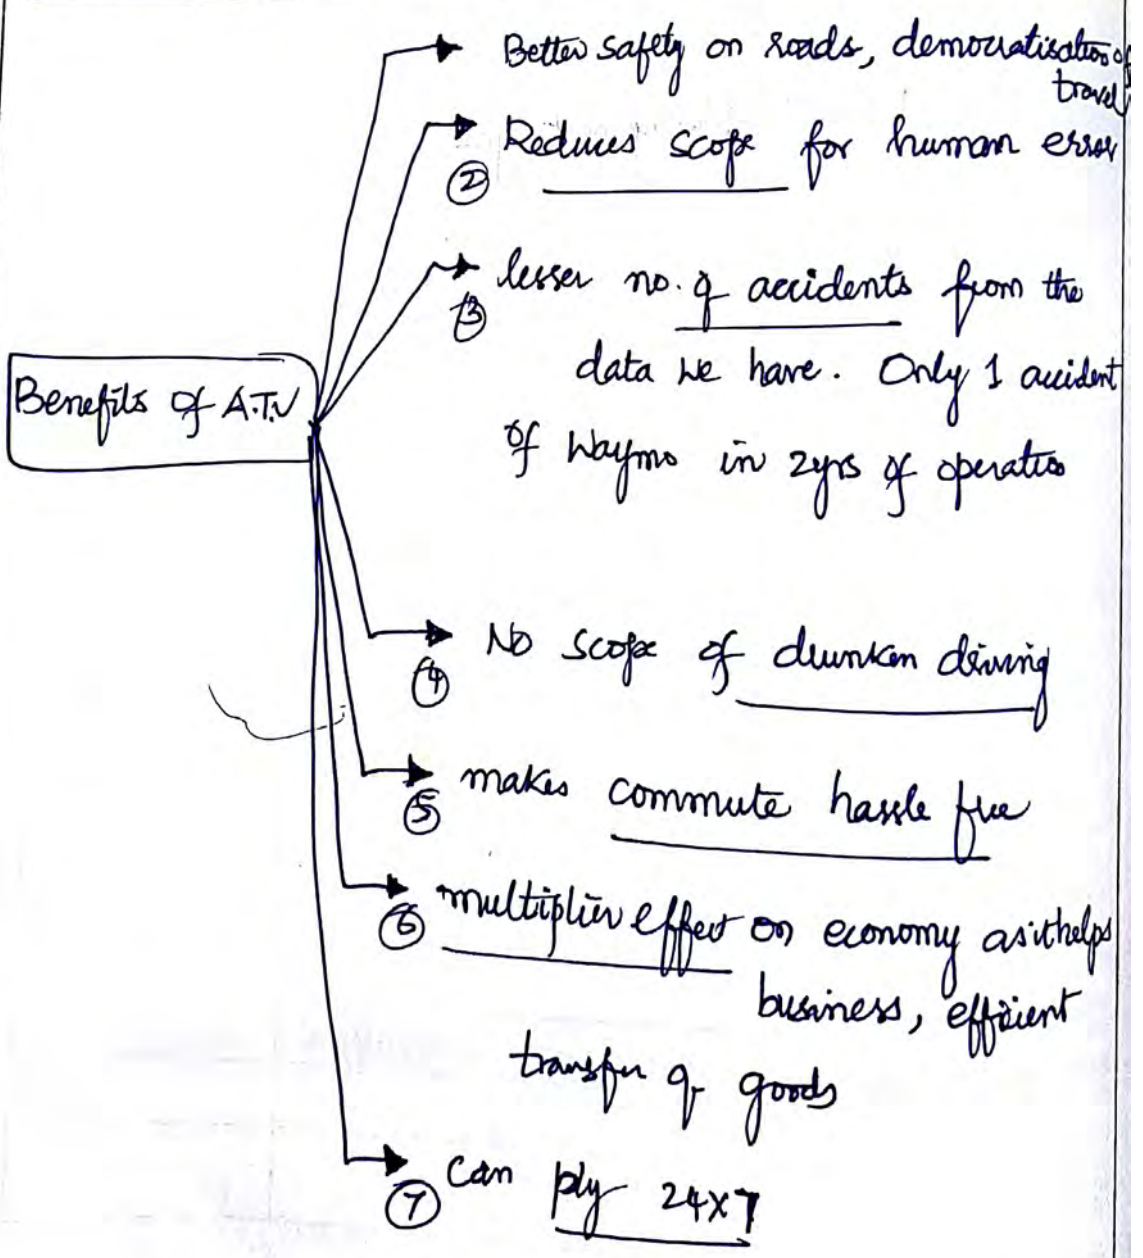 Better safety on roads, democratisation of
travel
Reduces scope for human error
②
lesser no. of accidents from the
③
data we have. Only 1 accident
of Waymo in 2yrs of operation
Benefits of A.T.V
No scope of drunken driving
④
makes commute hassle free
⑤
multiplier effect on economy as it helps
⑥
business, efficient
transfer of goods
Can ply 24x7
⑦